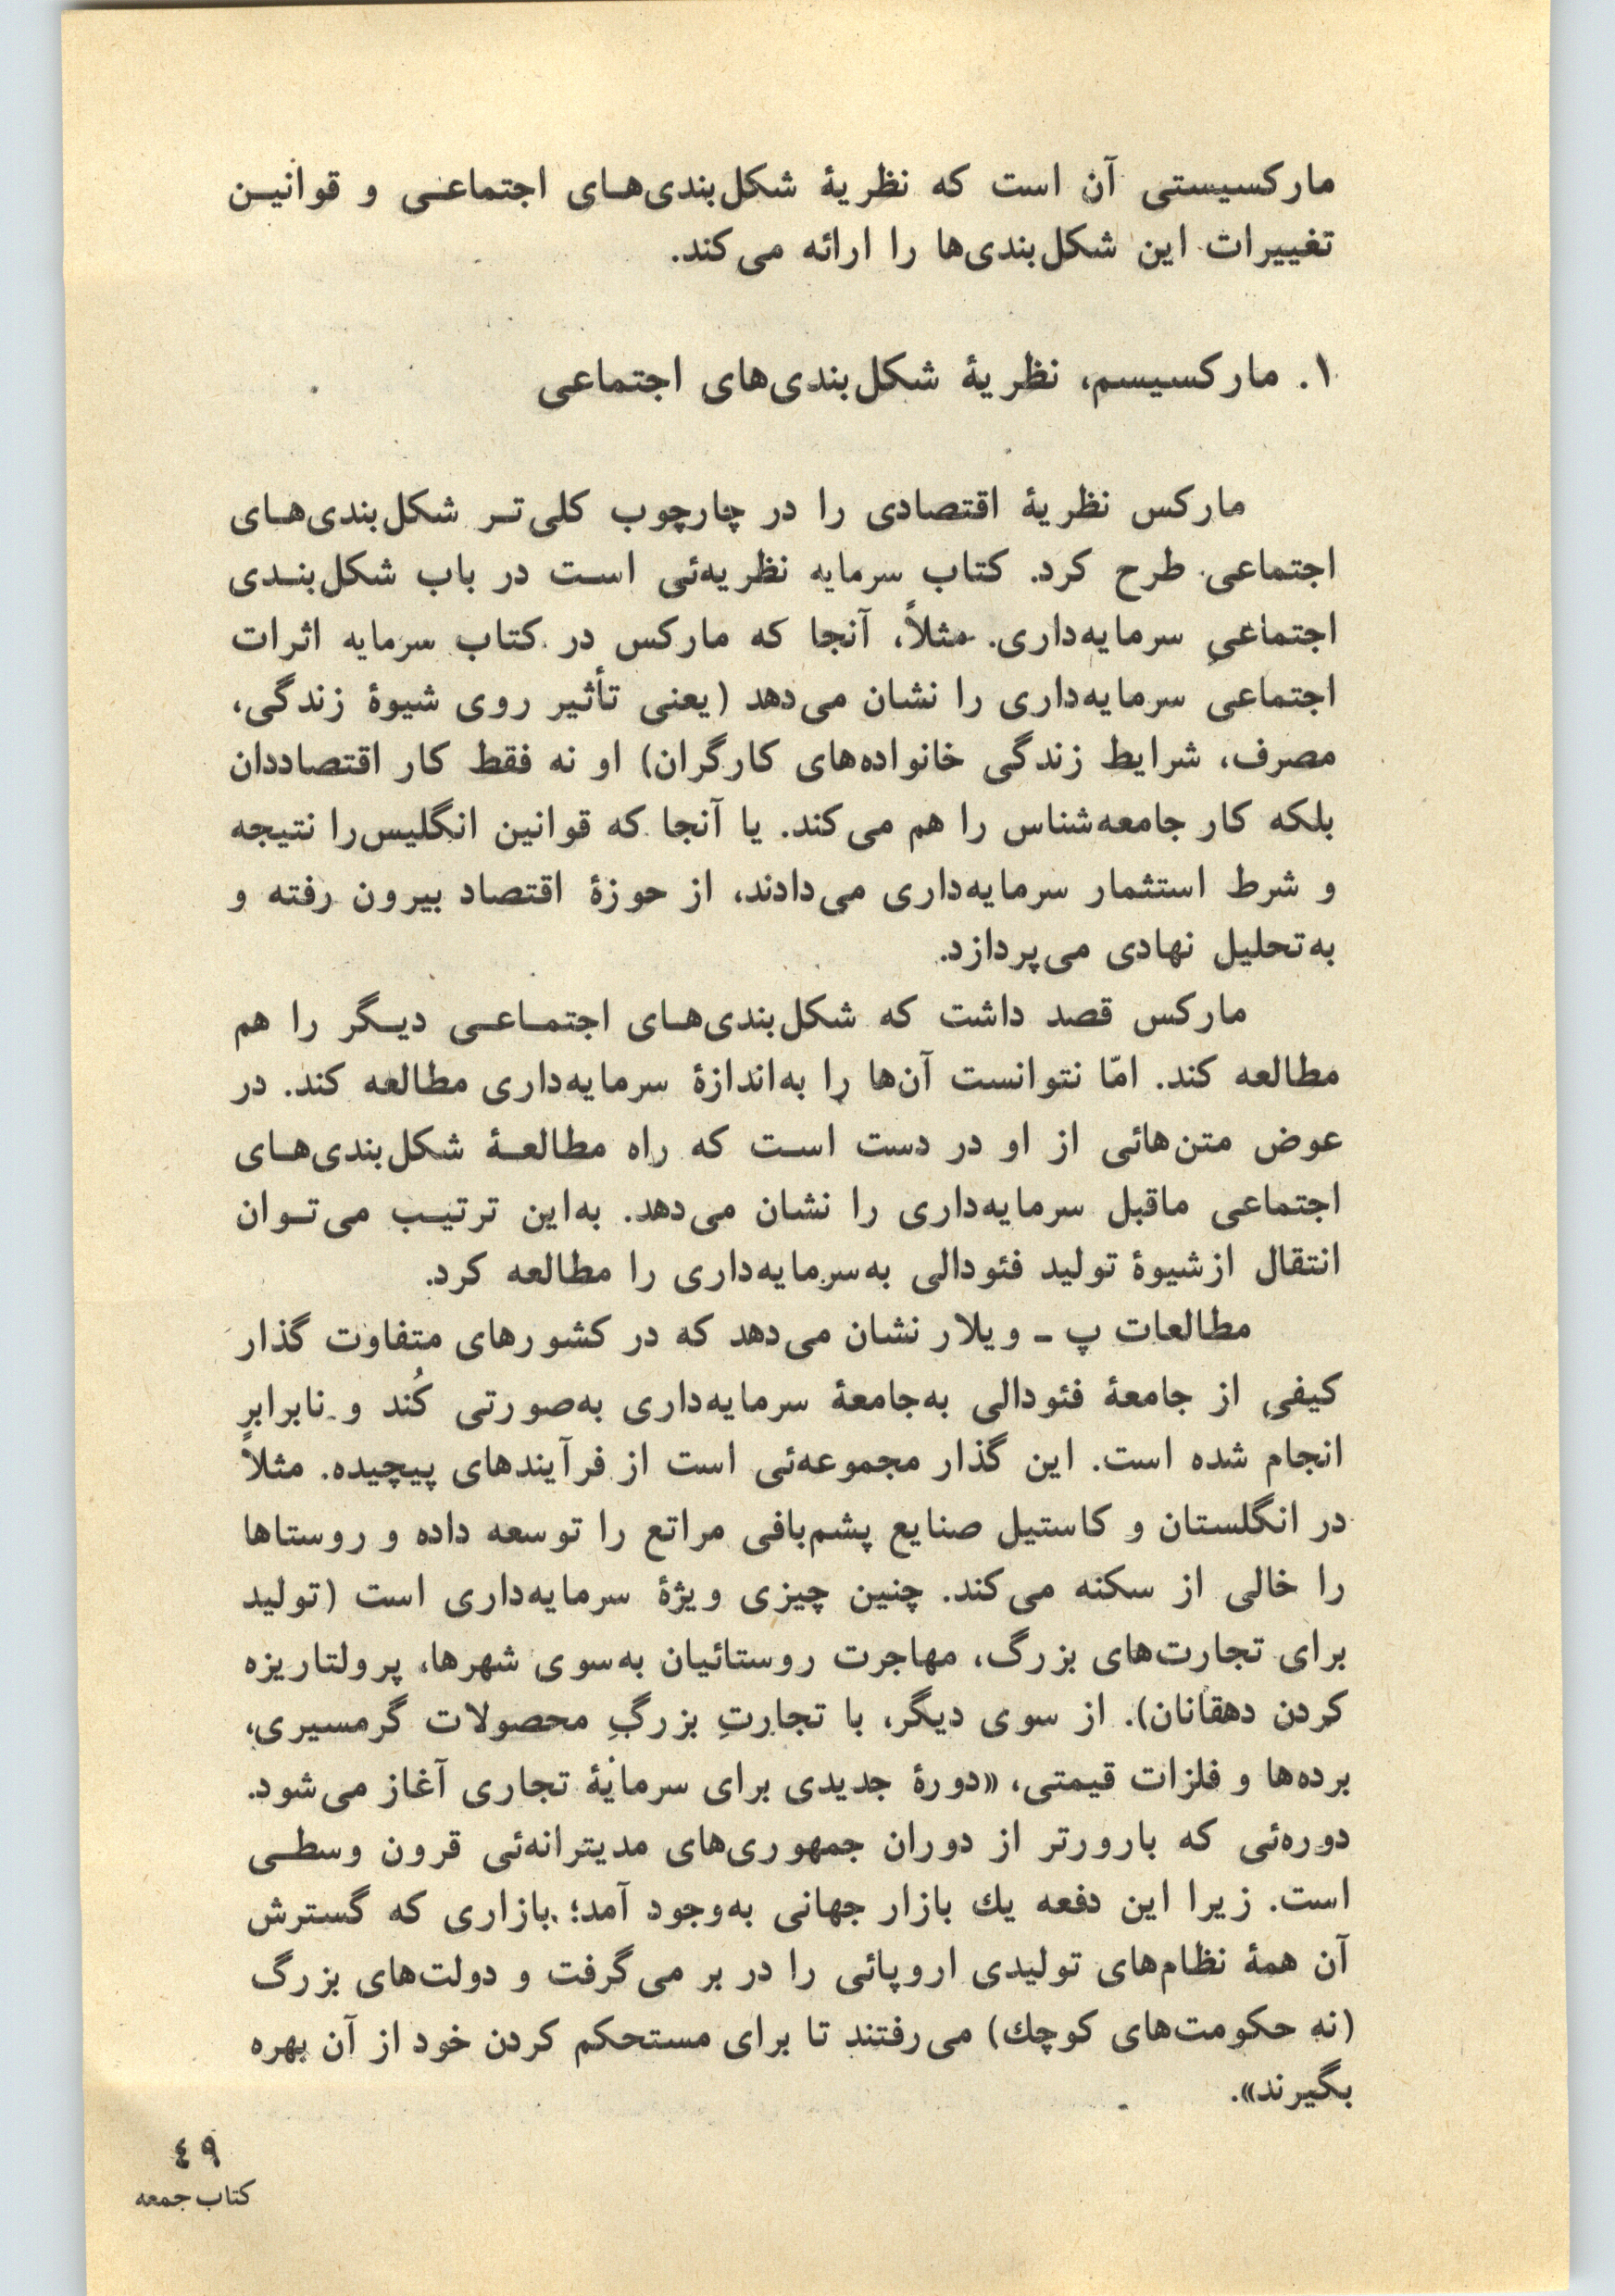 مارکسیستی آن است که نظریهٔ شکل‌بندی‌هـای اجتماعـی و قوانیـن
تغییرات این شکل‌بندی‌ها را ارائه می‌کند.
۱. مارکسیسم، نظریهٔ شکل‌بندی‌های اجتماعی
مارکس نظریهٔ اقتصادی را در چارچوب کلی‌تـر شکل‌بندی‌هـای
اجتماعی طرح کرد. کتاب سرمایه نظریه‌ئی اسـت در باب شکل‌بنـدی
اجتماعیِ سرمایه‌داری. مثلاً، آنجا که مارکس در کتاب سرمایه اثرات
اجتماعیِ سرمایه‌داری را نشان می‌دهد (یعنی تأثیر روی شیوهٔ زندگی،
مصرف، شرایط زندگی خانواده‌های کارگران) او نه فقط کار اقتصاددان
بلکه کار جامعه‌شناس را هم می‌کند. یا آنجا که قوانین انگلیس‌را نتیجه
و شرط استثمار سرمایه‌داری می‌دادند، از حوزهٔ اقتصاد بیرون رفته و
به‌تحلیل نهادی می‌پردازد.
مارکس قصد داشت که شکل‌بندی‌هـای اجتمـاعـی دیـگر را هم
مطالعه کند. امّا نتوانست آن‌ها را به‌اندازهٔ سرمایه‌داری مطالعه کند. در
عوض متن‌هائی از او در دست اسـت که راه مطالعـهٔ شکل‌بندی‌هـای
اجتماعی ماقبل سرمایه‌داری را نشان می‌دهد. به‌این ترتیـب می‌تـوان
انتقال ازشیوهٔ تولید فئودالی به‌سرمایه‌داری را مطالعه کرد.
مطالعات پ ـ ویلار نشان می‌دهد که در کشورهای متفاوت گذار
کیفیِ از جامعهٔ فئودالی به‌جامعهٔ سرمایه‌داری به‌صورتی کُند و نابرابر
انجام شده است. این گذار مجموعه‌ئی است از فرآیندهای پیچیده. مثلاً
در انگلستان و کاستیل صنایع پشم‌بافی مراتع را توسعه داده و روستاها
را خالی از سکنه می‌کند. چنین چیزی ویژهٔ سرمایه‌داری است (تولید
برای تجارت‌های بزرگ، مهاجرت روستائیان به‌سوی شهرها، پرولتاریزه
کردن دهقانان). از سوی دیگر، با تجارتِ بزرگِ محصولات گرمسیری،
برده‌ها و فلزات قیمتی، «دورهٔ جدیدی برای سرمایهٔ تجاری آغاز می‌شود.
دوره‌ئی که بارورتر از دوران جمهوری‌های مدیترانه‌ئی قرون وسطـی
است. زیرا این دفعه یك بازار جهانی به‌وجود آمد؛ بازاری که گسترش
آن همهٔ نظام‌های تولیدی اروپائی را در بر می‌گرفت و دولت‌های بزرگ
(نه حکومت‌های کوچك) می‌رفتند تا برای مستحکم کردن خود از آن بهره
بگیرند».
٤٩
کتاب جمعه